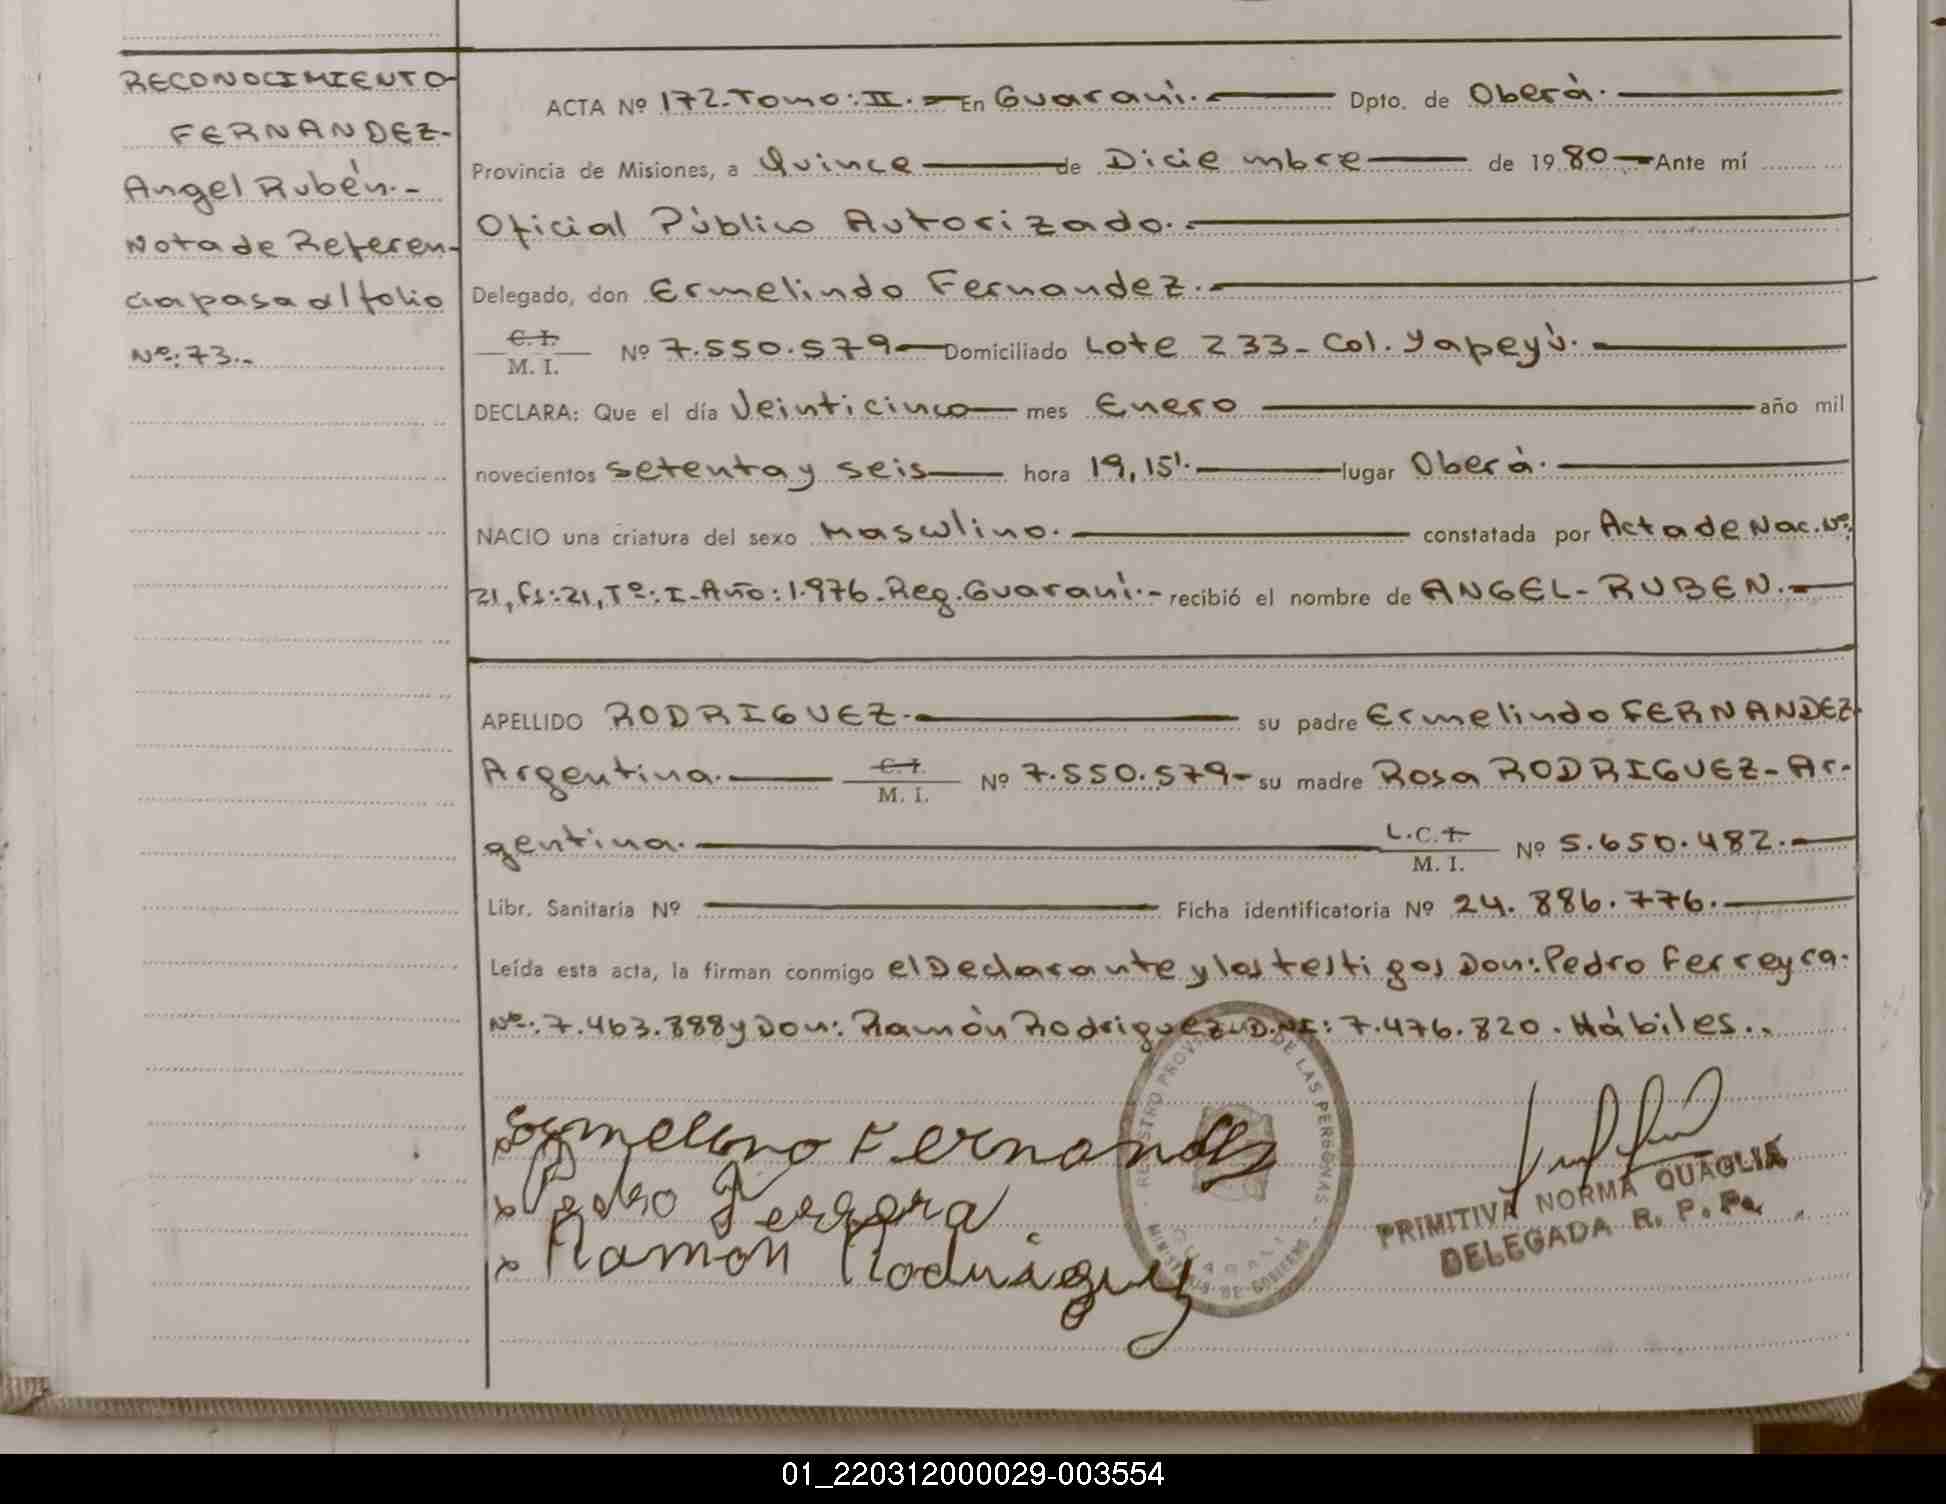 RECONOCIMIENTO
FERNANDEZ-
Angel Rubén.-
Nota de Referen-
cia pasa al folio
Nº:73.-
ACTA Nº 172-Tomo: II.- En Guaraní.- Dpto. de Oberá.
Provincia de Misiones, a Quince de Diciembre de 1980 Ante mí
Oficial Público Autorizado.-
Delegado, don Ermelindo Fernandez.-
C.I.
M. I. Nº 7.550.579 Domiciliado Lote 233- Col. Yapeyú.
DECLARA: Que el día Veinticinco mes Enero año mil
novecientos setenta y seis hora 19,15'. lugar Oberá.
NACIO una criatura del sexo Masculino. constatada por Acta de Nac. Nº:
21, fs:21, Tº: I- Año: 1.976-Reg. Guaraní.- recibió el nombre de ANGEL- RUBEN.-
APELLIDO RODRIGUEZ. su padre Ermelindo FERNANDEZ-
Argentina. C.I.
M. I. Nº 7.550.579- su madre Rosa RODRIGUEZ- Ar-
gentina. L.C.I.
M. I. Nº 5.650.482.-
Libr. Sanitaria Nº Ficha identificatoria Nº 24. 886. 776.
Leída esta acta, la firman conmigo el Declarante y los testigos Don: Pedro Ferreyra.
Nº: 7.463.888 y Don: Ramón Rodriguez-D.NI: 7.476.820. Hábiles..
Fernandez
Pedro Ferreyra
Ramon Rodriguez
REGISTRO PROV. DE LAS PERSONAS
MINISTERIO DE GOBIERNO
GUARANI
PRIMITIVA NORMA QUAGLIA
DELEGADA R. P. Ps.
01_220312000029-003554